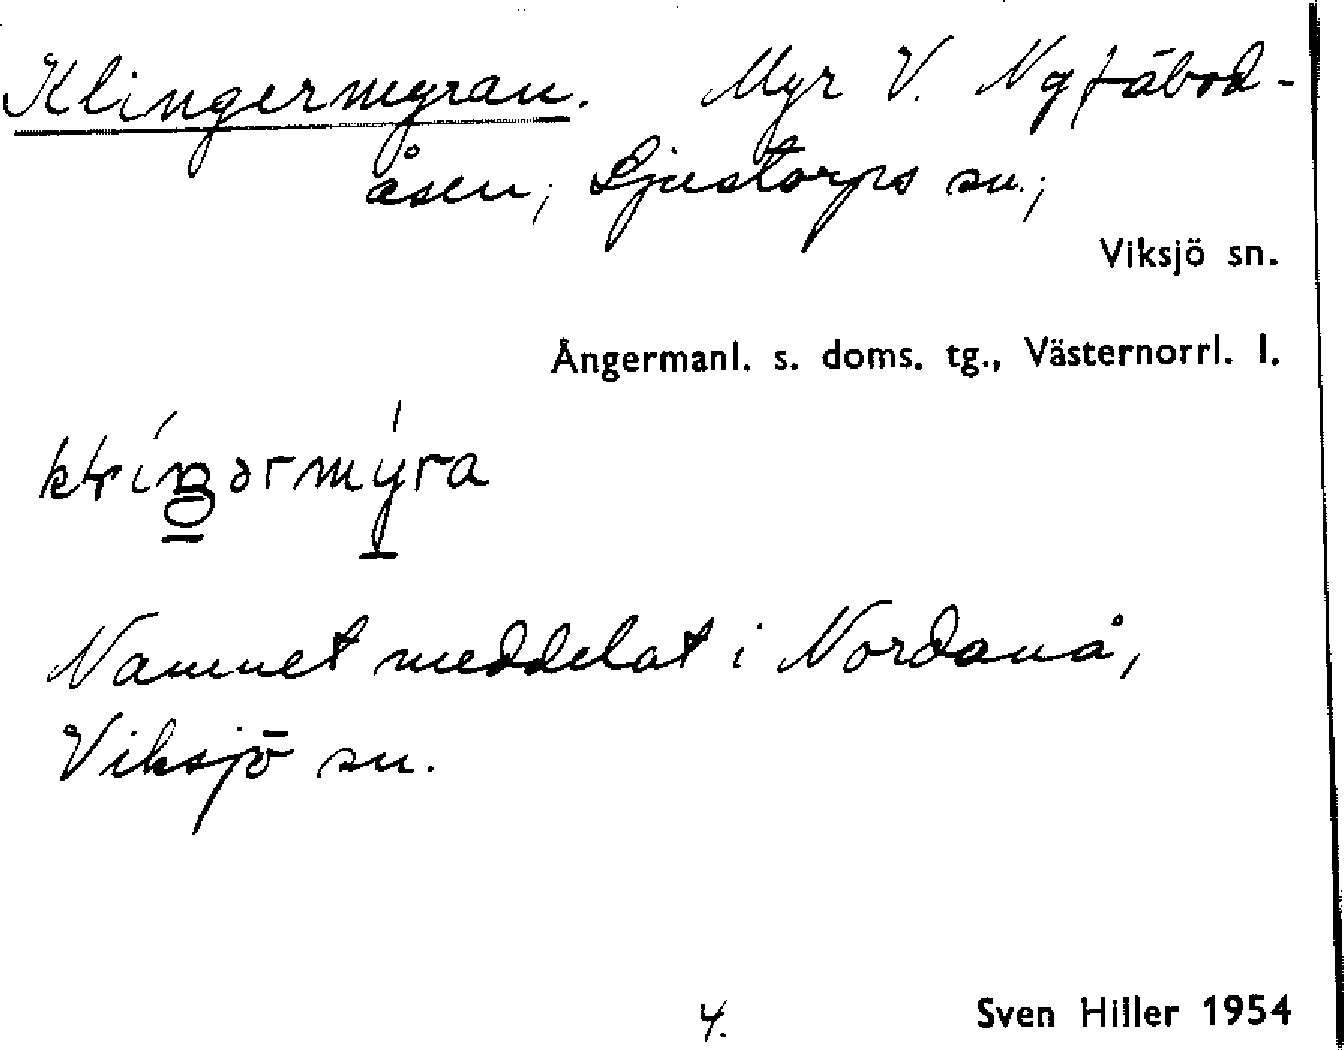 Klingermyran. Myr V. Nyfäbod-
åsen; Ljustorps sn.;
Viksjö sn.
Ångermanl. s. doms. tg., Västernorrl. l.
Namnet meddelat i Nordanå,
Viksjö sn.
4. Sven Hiller 1954